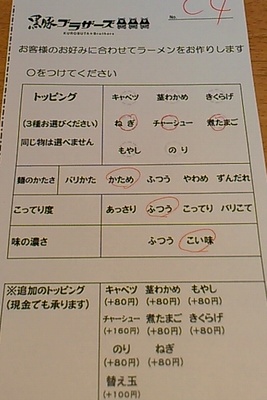 黒豚ブラザーズ
KUROBUTA★Brothers
No. C4
お客様のお好みに合わせてラーメンをお作りします
○をつけてください
トッピング
(3種お選びください)
同じ物は選べません
キャベツ 茎わかめ きくらげ
ねぎ チャーシュー 煮たまご
もやし のり
麺のかたさ バリかた かため ふつう やわめ ずんだれ
こってり度 あっさり ふつう こってり バリこて
味の濃さ ふつう こい味
※追加のトッピング
(現金でも承ります)
キャベツ 茎わかめ もやし
(+80円) (+80円) (+80円)
チャーシュー 煮たまご きくらげ
(+160円) (+80円) (+80円)
のり ねぎ
(+80円) (+80円)
替え玉
(+100円)